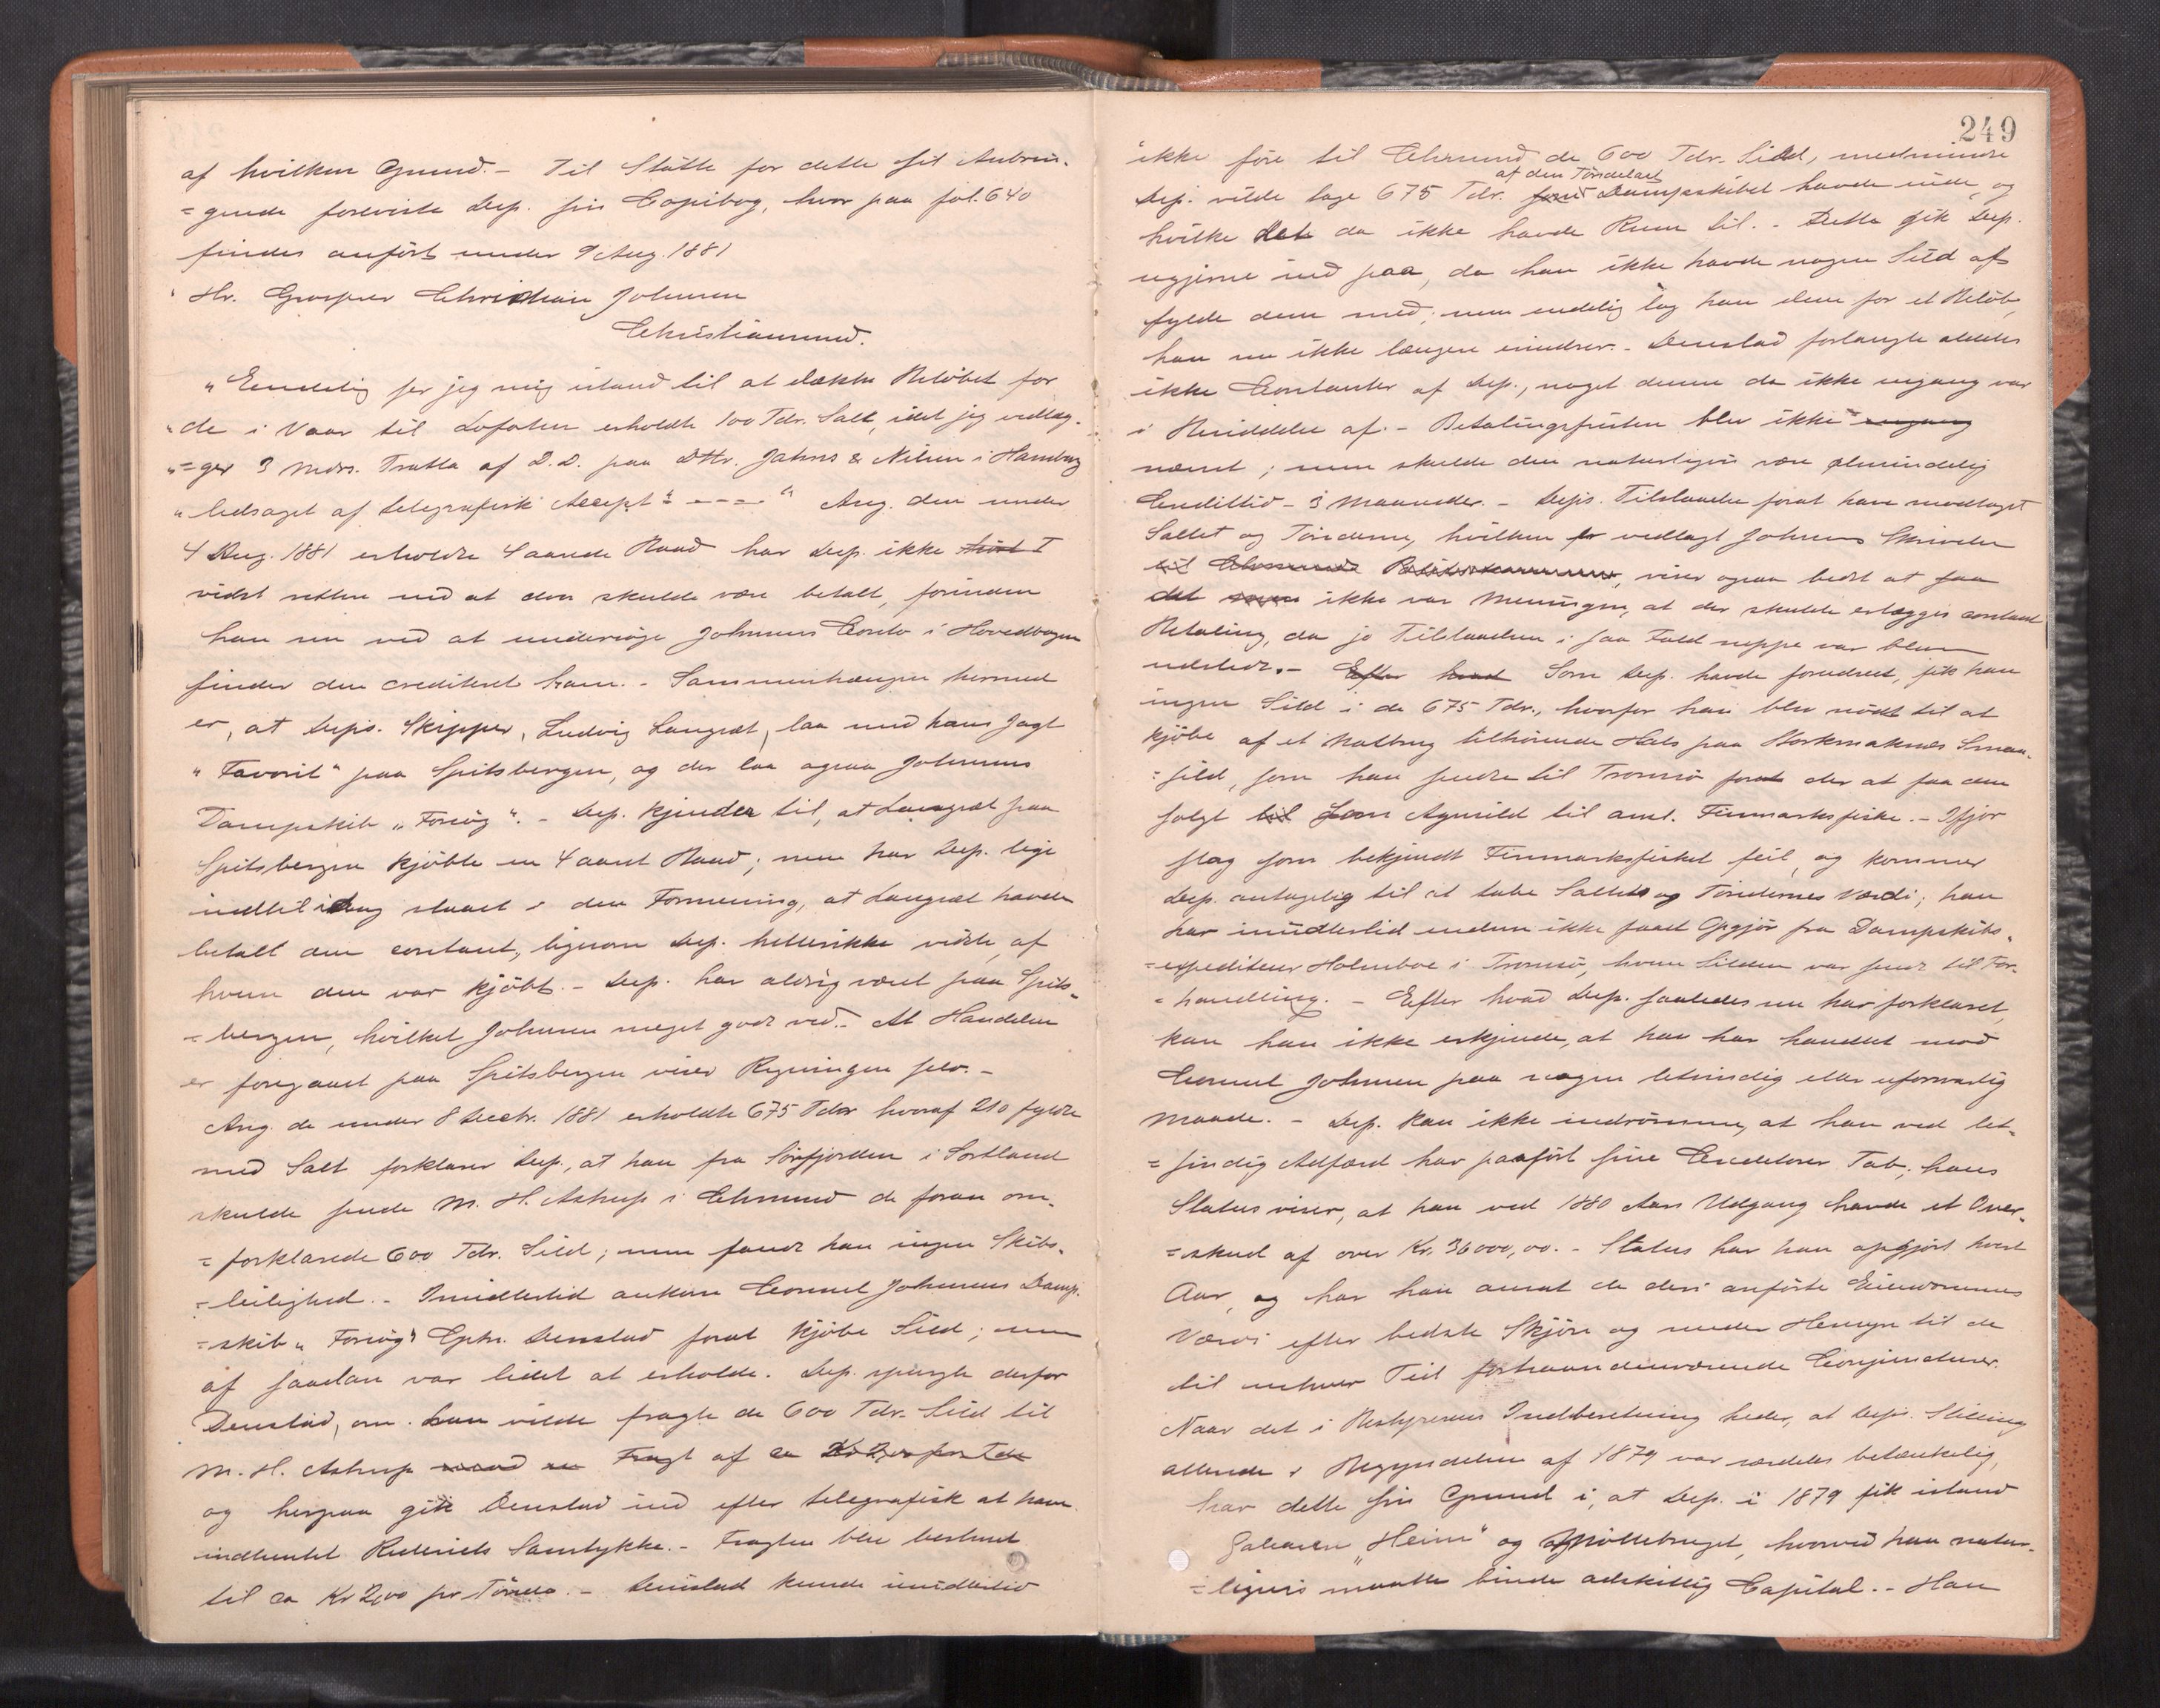 af hvilken Grund. - Til Støtte for dette sit Anbrin-
=gende foreviste Dep. sin Copibog, hvor paa fol. 640
findes anført under 9 Aug. 1881
"Hr. Grosserer Christian Johnsen
Christianssund.
"Eendelig ser jeg mig istand til at dække Beløbet for
"de i Vaar til Lofoten erholdte 100 Tdr. Salt, idet jeg vedlæg-
"=ger 3 Mdrs. Tratta af D.D. paa DHr. Jahns & Nilsen i Hamburg
"ledsaget af telegrafisk Accept" - - - - " Ang. den under
4 Aug. 1881 erholdte 4 aarede Baad har Dep. ikke
vidst rettere end at den skulde være betalt, forinden
han nu ved at undersøge Johnsens Conto i Hovedbogen
finder den crediteret ham. - Sammenhængen hermed
er, at Deps. Skipper, Ludvig Langræt, laa med hans Jagt
"Favorit" paa Spitsbergen, og der laa ogsaa Johnsens
Dampskib "Forsøg". - Dep. kjender til, at Langræt paa
Spitsbergen kjøbte en 4 aaret Baad; men har Dep. lige
indtil idag staaet i den Formening, at Langræt havde
betalt den contant, ligesom Dep. hellerikke vidste, af
hvem den var kjøbt. - Dep. har aldrig været paa Spits-
=bergen, hvilket Johnsen meget godt ved. - At Handelen
er foregaaet paa Spitsbergen viser Regningen selv. -
Ang. de under 8 Decbr. 1881 erholdte 675 Tdr hvoraf 210 fyldte
med Salt forklarer Dep., at han fra Sørfjorden i Sortland
skulde sende M. H. Astrup i Chrsund de foran om-
=forklarede 600 Tdr. Sild; men fandt han ingen Skibs-
=leilighed. - Imidlertid ankom Consul Johnsens Damp-
=skib "Forsøg" Cptn. Denstad forat kjøbe Sild; men
af saadan var lidet at erholde. Dep. spurgte derfor
Denstad, om han vilde fragte de 600 Tdr. Sild til
M. H. Astrup mod en Fragt af ca Kr 2,00 pr Tde
og herpaa gik Denstad ind efter telegrafisk at have
indhentet Rederiets Samtykke. - Fragten blev bestemt
til ca Kr 2,00 pr Tønde. - Denstad kunde imidlertid
249
ikke føre til Chrsund de 600 Tdr. Sild, medmindre
af den Tøndelast
Dep. vilde tage 675 Tdr. som Dampskibet havde inde, og
hvilke Det da ikke havde Rum til. - Dette gik Dep.
ugjerne ind paa, da han ikke havde nogen Sild at
fylde dem med; men endelig tog han dem for et Beløb,
han nu ikke længere erindrer. - Denstad forlangte aldeles
ikke Contanter af Dep., noget denne da ikke engang var
i Besiddelse af. - Betalingsfristen blev ikke engang
nævnt; men skulde den naturligvis være almindelig
Credittid - 3 Maaneder. - Deps. Tilstaaelse forat have modtaget
Saltet og Tønderne, hvilken er vedlagt Johnsens Skrivelse
til Chrsunds Politikammer, viser ogsaa bedst at
det ikke var Meningen, at der skulde erlægges contant
Betaling, da jo Tilstaaelsen i saa Fald neppe var bleven
udstedt. - Efter hvad Som Dep. havde forudseet, fik han
ingen Sild i de 675 Tdr., hvorfor han blev nødt til at
kjøbe af et Notbrug tilhørende Hals paa Korsnæs Smaa-
=sild, som han sendte til Tromsø forat der at faa den
solgt til som Agnsild til anst. Finmarksfiske. - Ifjor
slog som bekjendt Finmarksfisket feil, og kommer
Dep. antagelig til at tabe Saltets og Tøndernes Værdi; han
har imidlertid endnu ikke faaet Opgjør fra Dampskibs-
=expediteur Holmboe i Tromsø, hvem Silden var sendt til For-
=handling. - Efter hvad Dep. saaledes nu har forklaret,
kan han ikke erkjende, at han har handlet mod
Consul Johnsen paa nogen letsindig eller uforsvarlig
Maade. - Dep. kan ikke indrømme, at han ved let-
=sindig Adfærd har paaført sine Creditorer Tab; hans
Status viser, at han ved 1880 Aars Udgang havde et Over-
=skud af over Kr. 36000,00. - Status har han opgjort hvert
Aar, og har han ansat de deri anførte Eiendommes
Værdi efter bedste Skjøn og under Hensyn til de
til enhver Tid forhaandenværende Conjuncturer.
Naar det i Bestyrerens Indberetning heder, at Deps. Stilling
allerede i Begyndelsen af 1879 var særdeles betænkelig,
har dette sin Grund i, at Dep. i 1879 fik istand
Galeasen "Heim" og Notbruget, hvorved han natur-
=ligvis maatte binde adskillig Capital. - Han